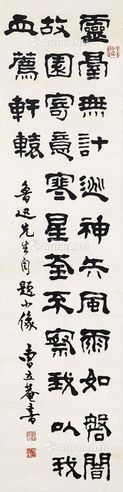 靈臺無計逃神矢風雨如磐闇
故園寄意寒星荃不察我以我
血薦軒轅
魯迅先生自題小像 曹立庵書